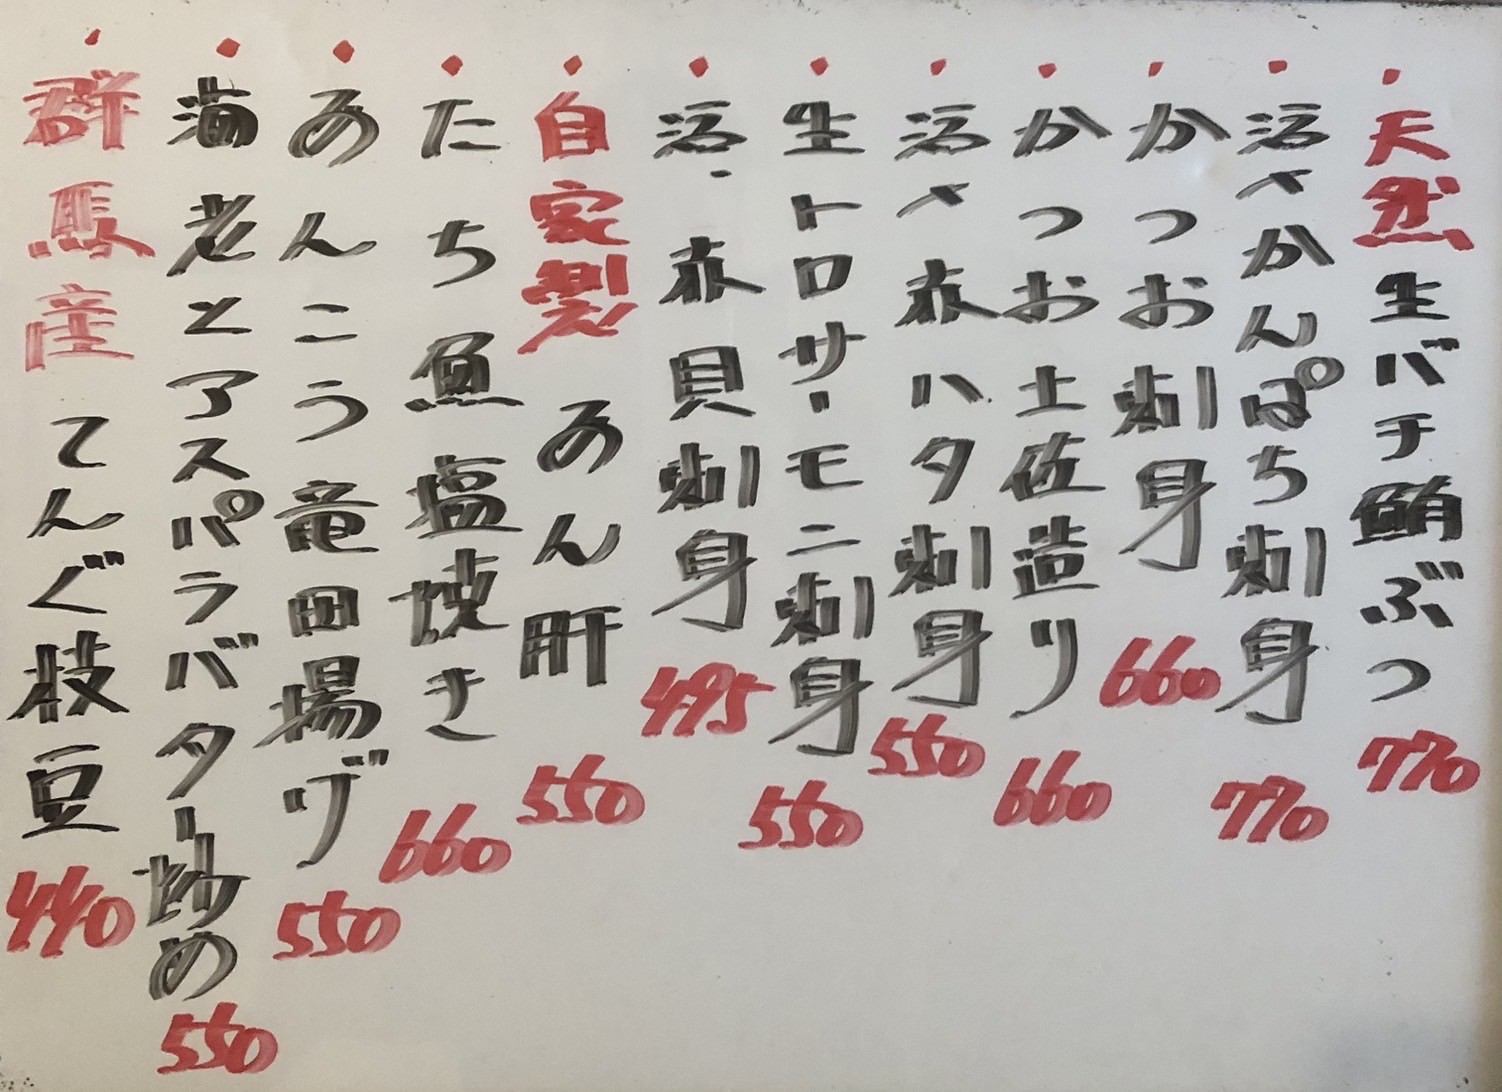 ・天然生バチ鮪ぶつ 770
・活〆かんぱち刺身 770
・かつお刺身 660
・かつお土佐造り 660
・活〆赤ハタ刺身 550
・生トロサーモン刺身 550
・活・赤貝刺身 495
・自家製 あん肝 550
・たち魚塩焼き 660
・あんこう竜田揚げ 550
・海老とアスパラバター炒め 550
・群馬産 てんぐ枝豆 440